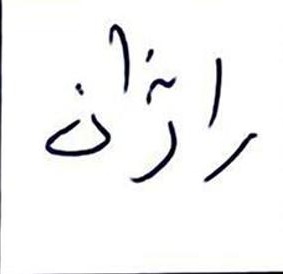 راژان